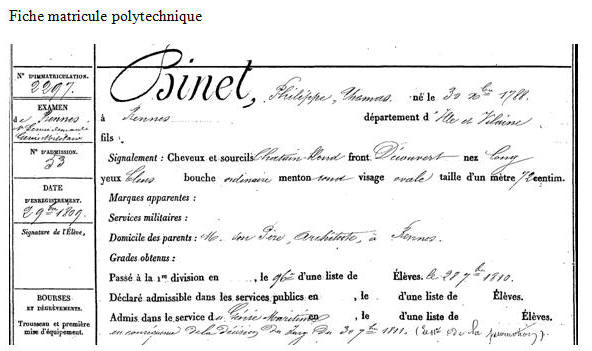 Fiche matricule polytechnique
N° D'IMMATRICULATION.
2297.
EXAMEN
de Rennes
N° D'ADMISSION.
33
DATE
D'ENREGISTREMENT.
2 9bre 1809.
Signature de l'Élève,
BOURSES
ET DÉGRÈVEMENTS.
Trousseau et première
mise d'équipement.
Binet, Philippe, Thomas. né le 30 xbre 1788.
à Rennes département d'Ille et Vilaine
fils :
Signalement : Cheveux et sourcils Chatain blond front Découvert nez long
yeux bleus bouche ordinaire menton rond visage ovale taille d'un mètre 72 centim.
Marques apparentes :
Services militaires :
Domicile des parents : M. son Père, Architecte, à Rennes.
Grades obtenus :
Passé à la 1re division en , le 96e d'une liste de Élèves. le 28 7bre 1810.
Déclaré admissible dans les services publics en , le d'une liste de Élèves.
Admis dans le service du Génie Maritime en , le d'une liste de Élèves.
en conséquence de la décision du du 30 7bre 1811. ( de la promotion).